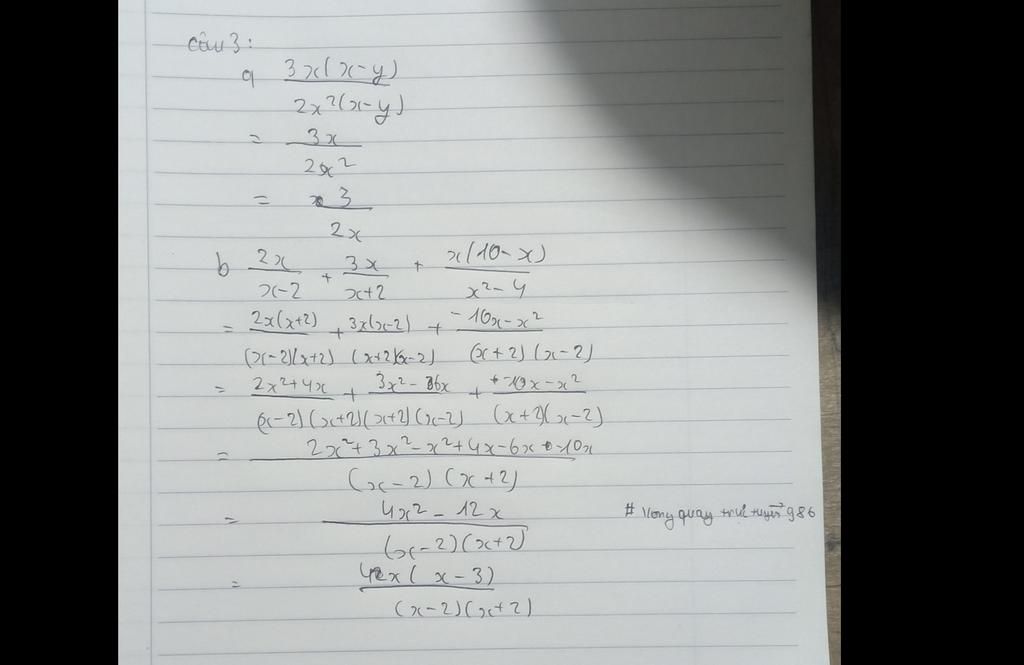 Câu 3:
a 3x(x-y)
2x²(x-y)
= 3x
2x²
= 3
2x
b 2x/x-2 + 3x/x+2 + x(10-x)/x²-4
= 2x(x+2)/(x-2)(x+2) + 3x(x-2)/(x+2)(x-2) + -10x-x²/(x+2)(x-2)
= 2x²+4x/(x-2)(x+2) + 3x²-6x/(x+2)(x-2) + -10x-x²/(x+2)(x-2)
= 2x²+3x²-x²+4x-6x-10x
(x-2)(x+2)
= 4x²-12x
(x-2)(x+2)
# Vòng quay trực tuyến 986
= 4x(x-3)
(x-2)(x+2)